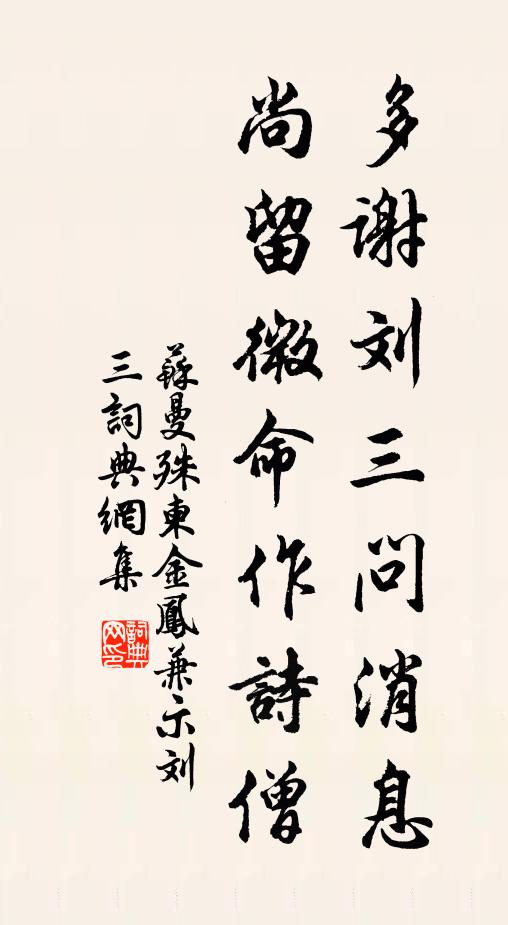 多謝刘三问消息
尚留微命作詩僧
蘇曼殊東金鳳兼示刘
三詞典網集
詞典网印